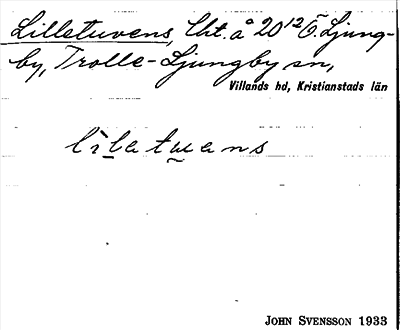 Lilletuvens, Lht. å 20¹² Ö. Ljung-
by, Trolle-Ljungby sn,
Villands hd, Kristianstads län
lìlatuans
JOHN SVENSSON 1933